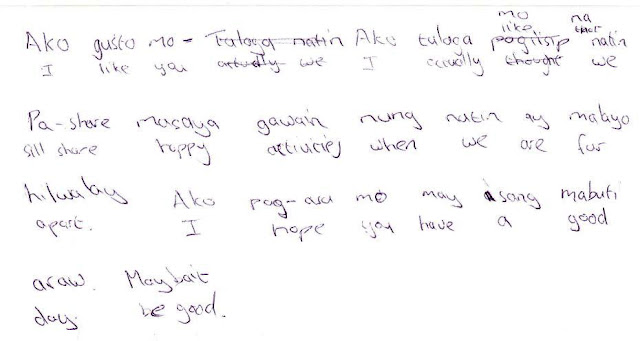 mo na
Ako gusto mo - Talaga natin Ako talaga like that natin
pagiisip
I like you actually we I actually thought we
Pa-share masaya gawain nung natin ay malayo
still share happy activities when we are far
hiwalay Ako pag-asa mo may isang mabuti
apart. I hope you have a good
araw. Maybait
day. be good.